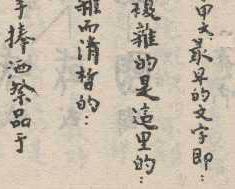 甲最早的文字即：
複雜的是這里的：
雜而清皙的：
手捧酒祭品于